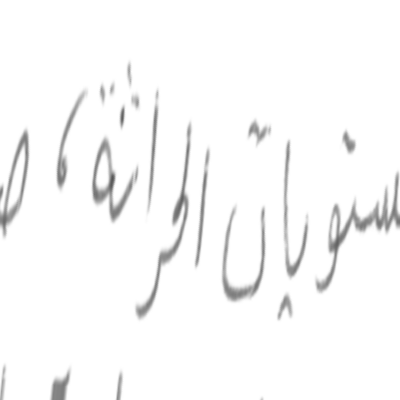 ستويات الحراثة ،